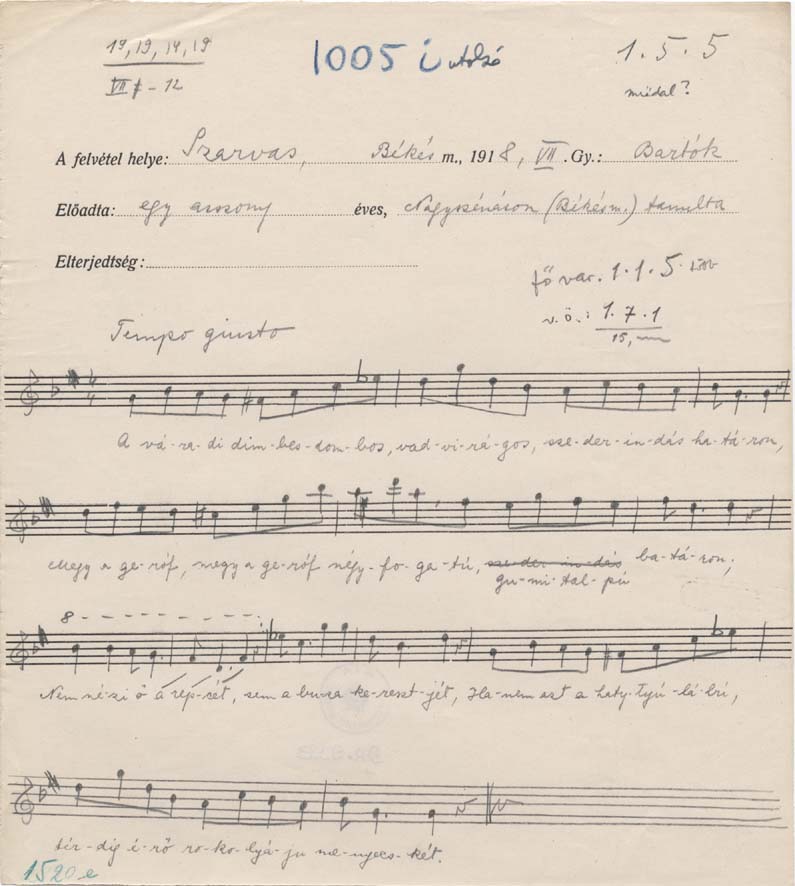 19, 19, 14, 19
1005 i utolsó
1. 5. 5
VII - 12
műdal?
A felvétel helye: Szarvas, Békés m., 1918, VII. Gy.: Bartók
Előadta: egy asszony éves, Nagyszénáson (Békésm.) tanulta
Elterjedtség:
fő var. 1.1.5.
v.ö.: 1.7.1
15,
Tempo giusto
4/4
A vá-ra-di dim-bes-dom-bos, vad-vi-rá-gos, sze-der-in-dás ha-tá-ron,
Megy a ge-róf, megy a ge-róf négy-fo-ga-tú, sze-der-in-dás ba-tá-ron;
gu-mi-tal-pú
8
Nem né-zi ő a rep-cét, sem a buza ke-reszt-jét, Ha-nem azt a haty-tyú-lá-bú,
tér-dig é-rő ro-ko-lyá-ju me-nyecs-két.
1520 e